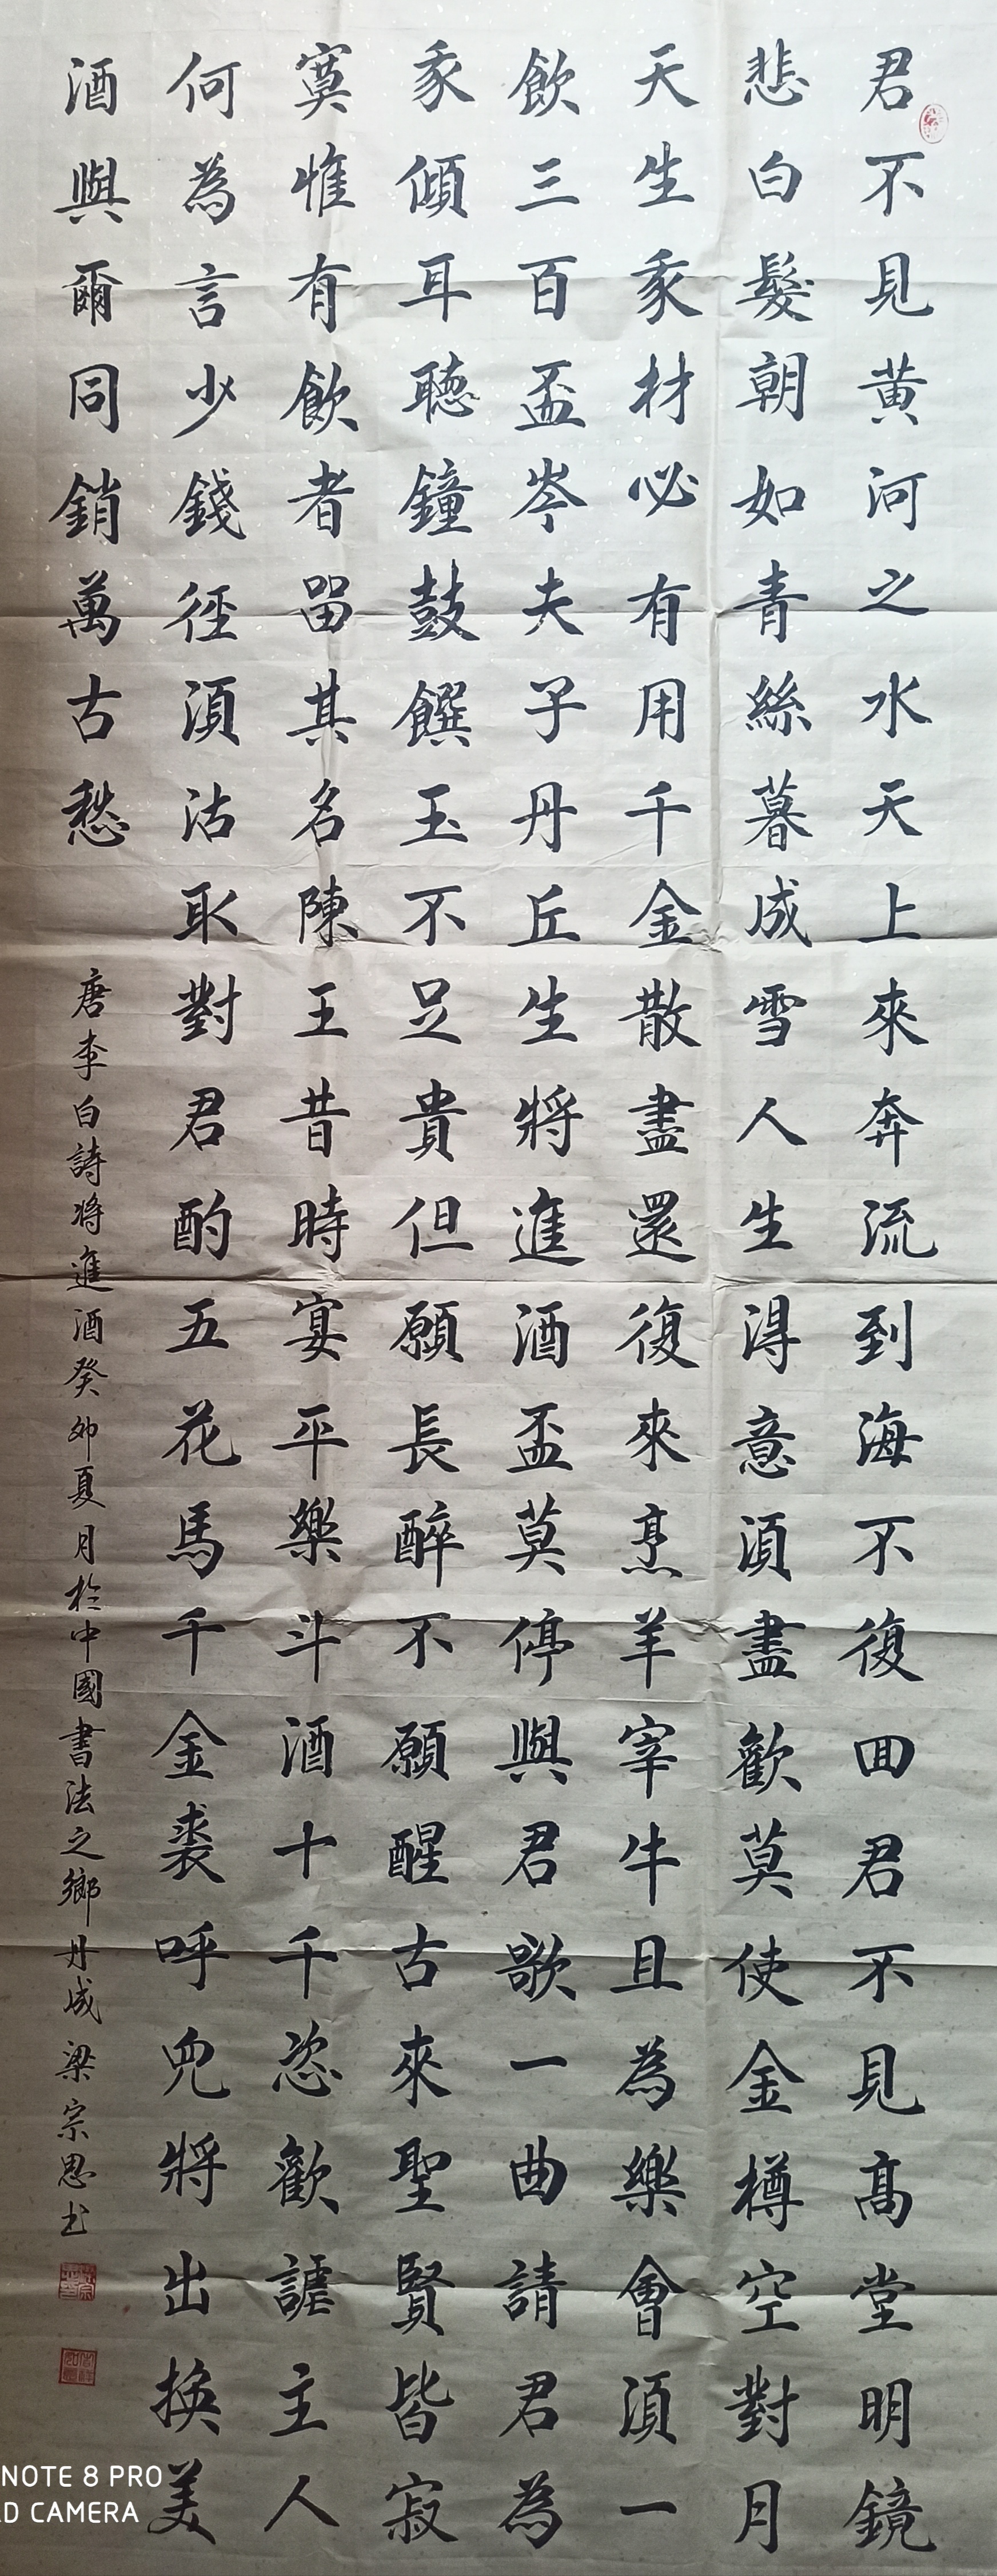 君不見黃河之水天上來奔流到海不復回君不見高堂明鏡
悲白髮朝如青絲暮成雪人生得意須盡歡莫使金樽空對月
天生我材必有用千金散盡還復來烹羊宰牛且為樂會須一
飲三百盃岑夫子丹丘生將進酒盃莫停與君歌一曲請君為
我傾耳聽鐘鼓饌玉不足貴但願長醉不願醒古來聖賢皆寂
寞惟有飲者留其名陳王昔時宴平樂斗酒十千恣歡謔主人
何為言少錢徑須沽取對君酌五花馬千金裘呼兒將出換美
酒與爾同銷萬古愁
唐李白詩將進酒癸卯夏月於中國書法之鄉丹成梁宗恩书
NOTE 8 PRO
D CAMERA